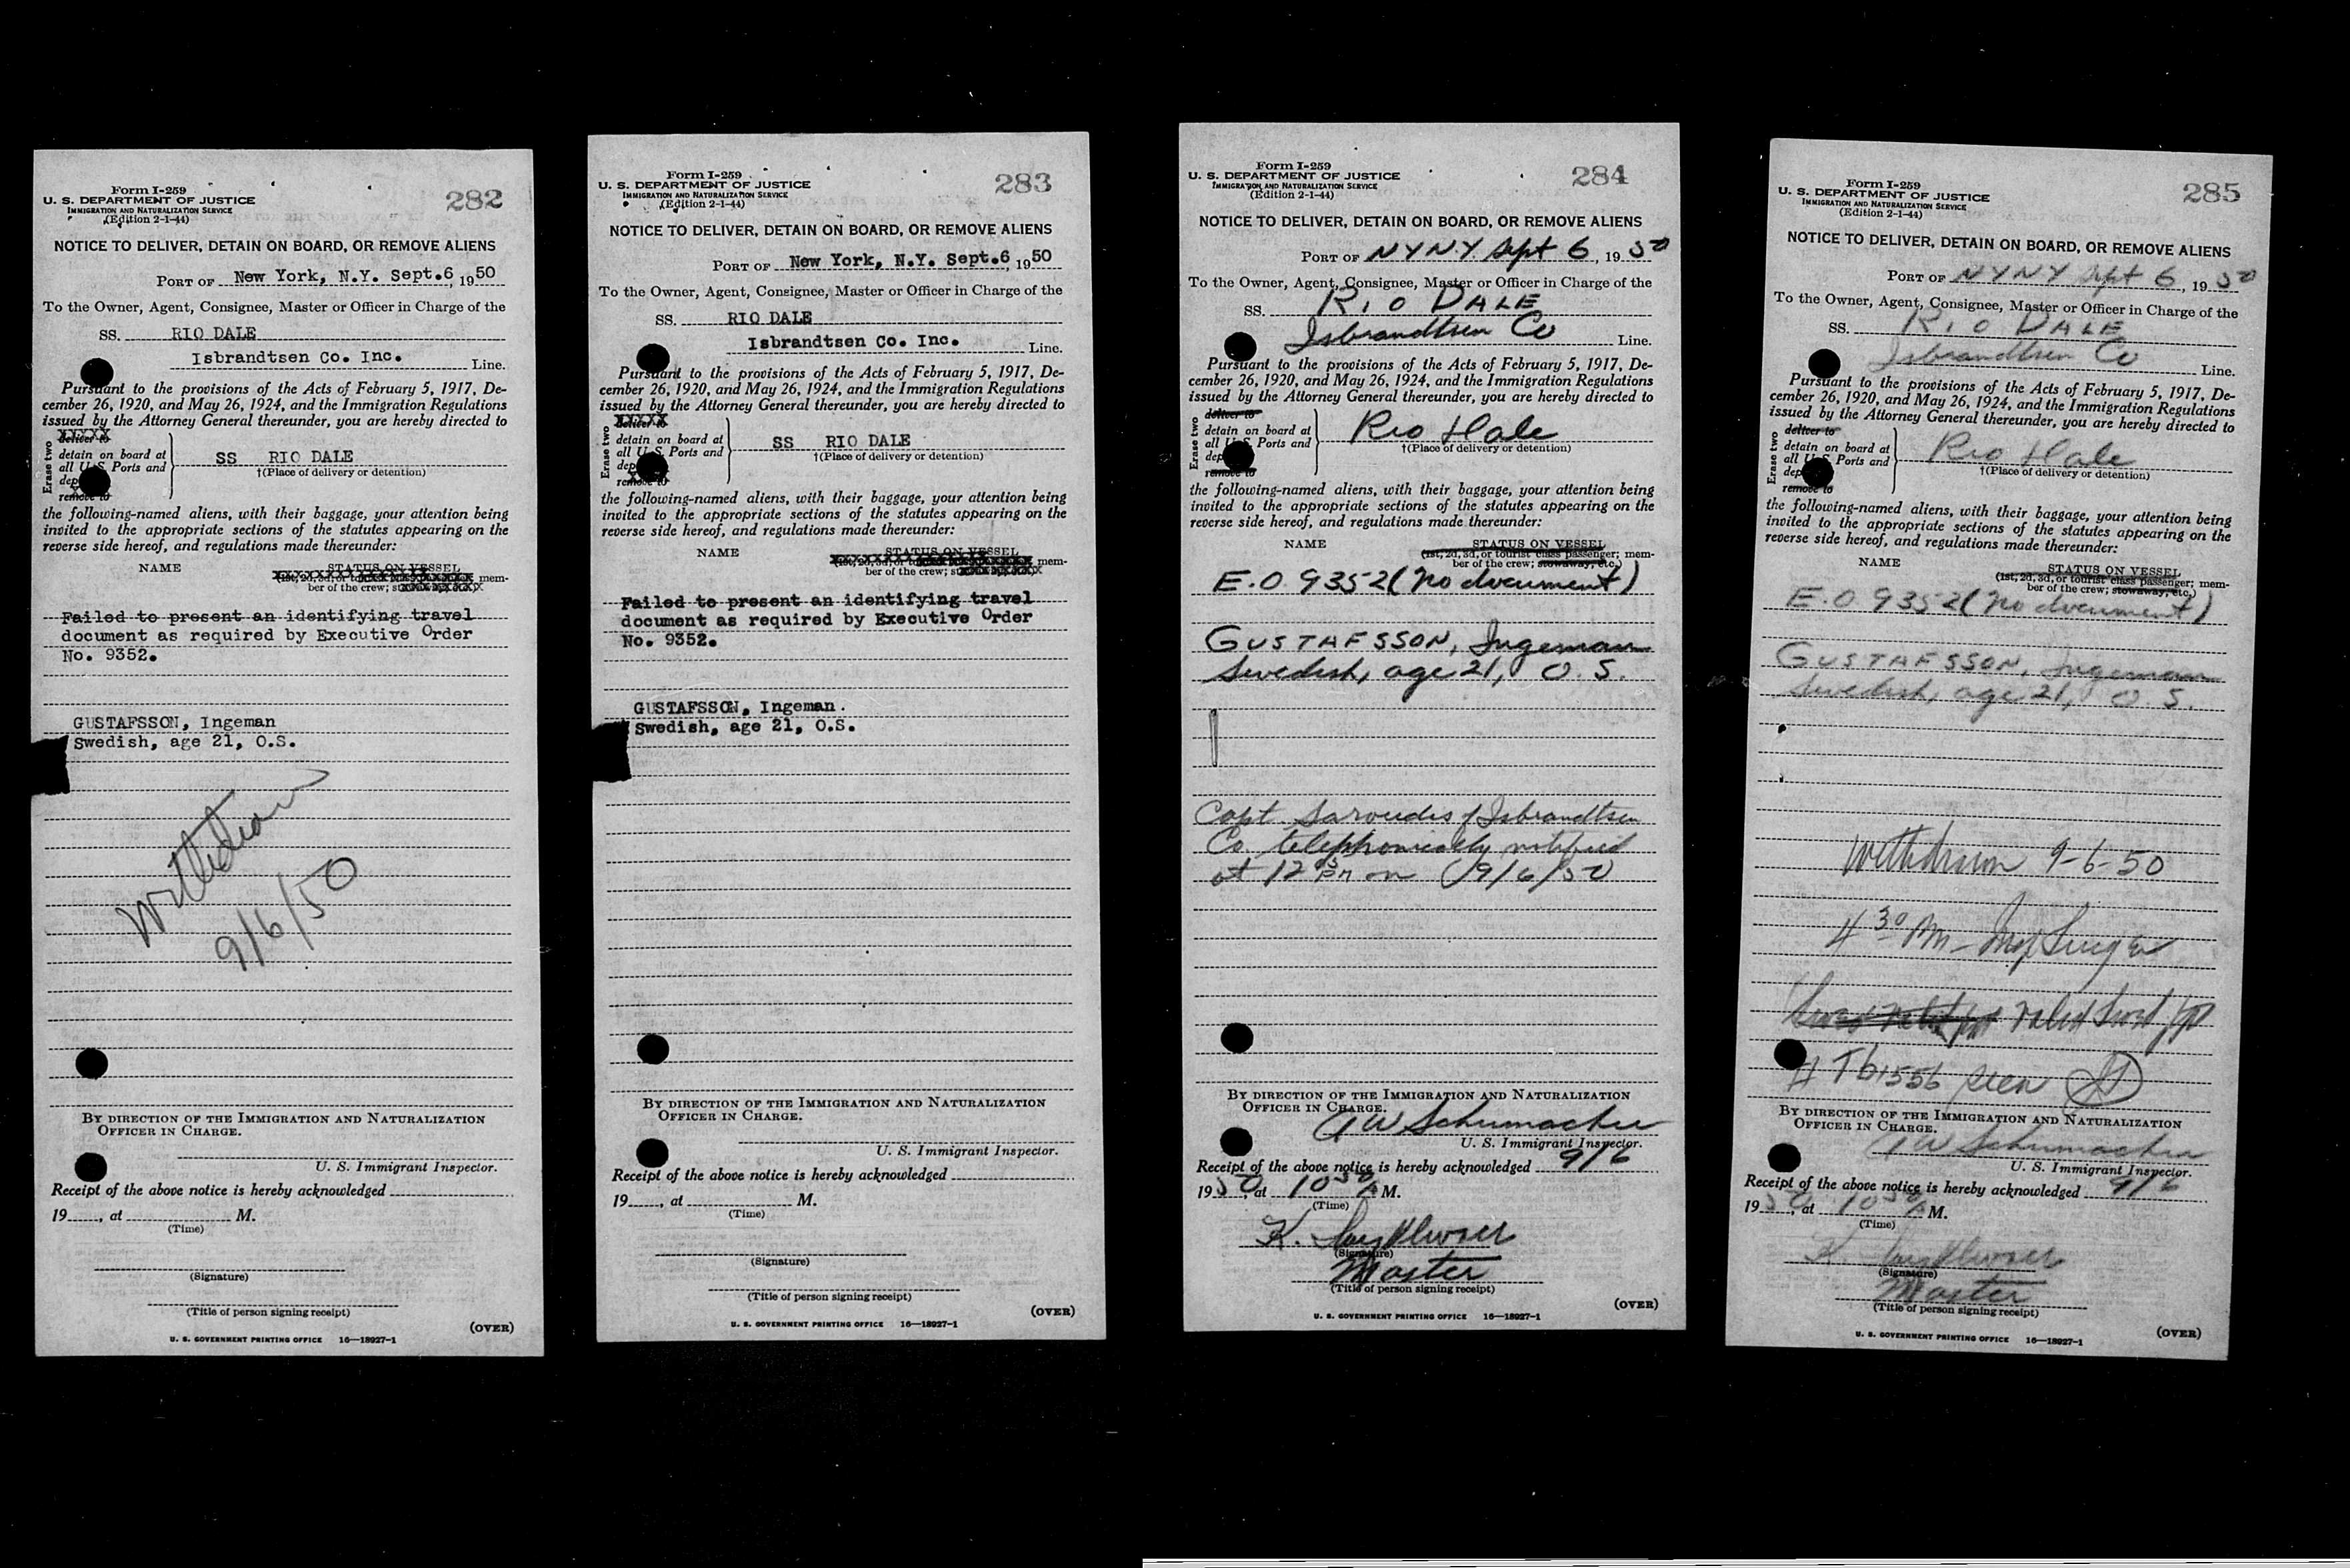 Form I-259
U. S. DEPARTMENT OF JUSTICE
IMMIGRATION AND NATURALIZATION SERVICE
(Edition 2-1-44)
282
NOTICE TO DELIVER, DETAIN ON BOARD, OR REMOVE ALIENS
PORT OF New York, N.Y. Sept.6, 1950
To the Owner, Agent, Consignee, Master or Officer in Charge of the
SS. RIO DALE
Isbrandtsen Co. Inc. Line.
Pursuant to the provisions of the Acts of February 5, 1917, De-
cember 26, 1920, and May 26, 1924, and the Immigration Regulations
issued by the Attorney General thereunder, you are hereby directed to
Erase two
deliver to
detain on board at
all U.S. Ports and
SS RIO DALE
†(Place of delivery or detention)
remove to
the following-named aliens, with their baggage, your attention being
invited to the appropriate sections of the statutes appearing on the
reverse side hereof, and regulations made thereunder:
NAME
STATUS ON VESSEL
mem-
ber of the crew;
Failed to present an identifying travel
document as required by Executive Order
No. 9352.
GUSTAFSSON, Ingeman
Swedish, age 21, O.S.
Withdrawn
9/6/50
BY DIRECTION OF THE IMMIGRATION AND NATURALIZATION
OFFICER IN CHARGE.
U. S. Immigrant Inspector.
Receipt of the above notice is hereby acknowledged
19____, at ____ M.
(Time)
(Signature)
(Title of person signing receipt)
(OVER)
U. S. GOVERNMENT PRINTING OFFICE 16—18927-1
Form I-259
U. S. DEPARTMENT OF JUSTICE
IMMIGRATION AND NATURALIZATION SERVICE
(Edition 2-1-44)
283
NOTICE TO DELIVER, DETAIN ON BOARD, OR REMOVE ALIENS
PORT OF New York, N.Y. Sept.6, 1950
To the Owner, Agent, Consignee, Master or Officer in Charge of the
SS. RIO DALE
Isbrandtsen Co. Inc. Line.
Pursuant to the provisions of the Acts of February 5, 1917, De-
cember 26, 1920, and May 26, 1924, and the Immigration Regulations
issued by the Attorney General thereunder, you are hereby directed to
Erase two
deliver to
detain on board at
all U.S. Ports and
SS RIO DALE
†(Place of delivery or detention)
remove to
the following-named aliens, with their baggage, your attention being
invited to the appropriate sections of the statutes appearing on the
reverse side hereof, and regulations made thereunder:
NAME
STATUS ON VESSEL
mem-
ber of the crew;
Failed to present an identifying travel
document as required by Executive Order
No. 9352.
GUSTAFSSON, Ingeman.
Swedish, age 21, O.S.
BY DIRECTION OF THE IMMIGRATION AND NATURALIZATION
OFFICER IN CHARGE.
U. S. Immigrant Inspector.
Receipt of the above notice is hereby acknowledged
19____, at ____ M.
(Time)
(Signature)
(Title of person signing receipt)
(OVER)
U. S. GOVERNMENT PRINTING OFFICE 16—18927-1
Form I-259
U. S. DEPARTMENT OF JUSTICE
IMMIGRATION AND NATURALIZATION SERVICE
(Edition 2-1-44)
284
NOTICE TO DELIVER, DETAIN ON BOARD, OR REMOVE ALIENS
PORT OF NYNY Sept 6, 1950
To the Owner, Agent, Consignee, Master or Officer in Charge of the
SS. RIO DALE
Isbrandtsen Co Line.
Pursuant to the provisions of the Acts of February 5, 1917, De-
cember 26, 1920, and May 26, 1924, and the Immigration Regulations
issued by the Attorney General thereunder, you are hereby directed to
Erase two
deliver to
detain on board at
all U.S. Ports and
Rio Dale
†(Place of delivery or detention)
remove to
the following-named aliens, with their baggage, your attention being
invited to the appropriate sections of the statutes appearing on the
reverse side hereof, and regulations made thereunder:
NAME
STATUS ON VESSEL
(1st, 2d, 3d, or tourist class passenger; mem-
ber of the crew; stowaway, etc.)
E.O 9352 (No document)
GUSTAFSSON, Ingeman
Swedish, age 21, O.S.
Capt. of Isbrandtsen
Co. telephonically notified
at 12 PM on 9/6/50
BY DIRECTION OF THE IMMIGRATION AND NATURALIZATION
OFFICER IN CHARGE.
A W Schumacher
U. S. Immigrant Inspector.
Receipt of the above notice is hereby acknowledged 9/6
1950 at 10 50 A M.
(Time)
K.
(Signature)
Master
(Title of person signing receipt)
(OVER)
U. S. GOVERNMENT PRINTING OFFICE 16—18927-1
Form I-259
U. S. DEPARTMENT OF JUSTICE
IMMIGRATION AND NATURALIZATION SERVICE
(Edition 2-1-44)
285
NOTICE TO DELIVER, DETAIN ON BOARD, OR REMOVE ALIENS
PORT OF NYNY Sept 6, 1950
To the Owner, Agent, Consignee, Master or Officer in Charge of the
SS. RIO DALE
Isbrandtsen Co Line.
Pursuant to the provisions of the Acts of February 5, 1917, De-
cember 26, 1920, and May 26, 1924, and the Immigration Regulations
issued by the Attorney General thereunder, you are hereby directed to
Erase two
deliver to
detain on board at
all U.S. Ports and
Rio Dale
†(Place of delivery or detention)
remove to
the following-named aliens, with their baggage, your attention being
invited to the appropriate sections of the statutes appearing on the
reverse side hereof, and regulations made thereunder:
NAME
STATUS ON VESSEL
(1st, 2d, 3d, or tourist class passenger; mem-
ber of the crew; stowaway, etc.)
E.O 9352 (No document)
GUSTAFSSON, Ingeman
Swedish, age 21, O.S.
Withdrawn 9-6-50
4 30 PM - Insp
Valid Swed ppt
seen
BY DIRECTION OF THE IMMIGRATION AND NATURALIZATION
OFFICER IN CHARGE.
A W Schumacher
U. S. Immigrant Inspector.
Receipt of the above notice is hereby acknowledged 9/6
1950, at 10 50 A M.
(Time)
K
(Signature)
Master
(Title of person signing receipt)
(OVER)
U. S. GOVERNMENT PRINTING OFFICE 16—18927-1